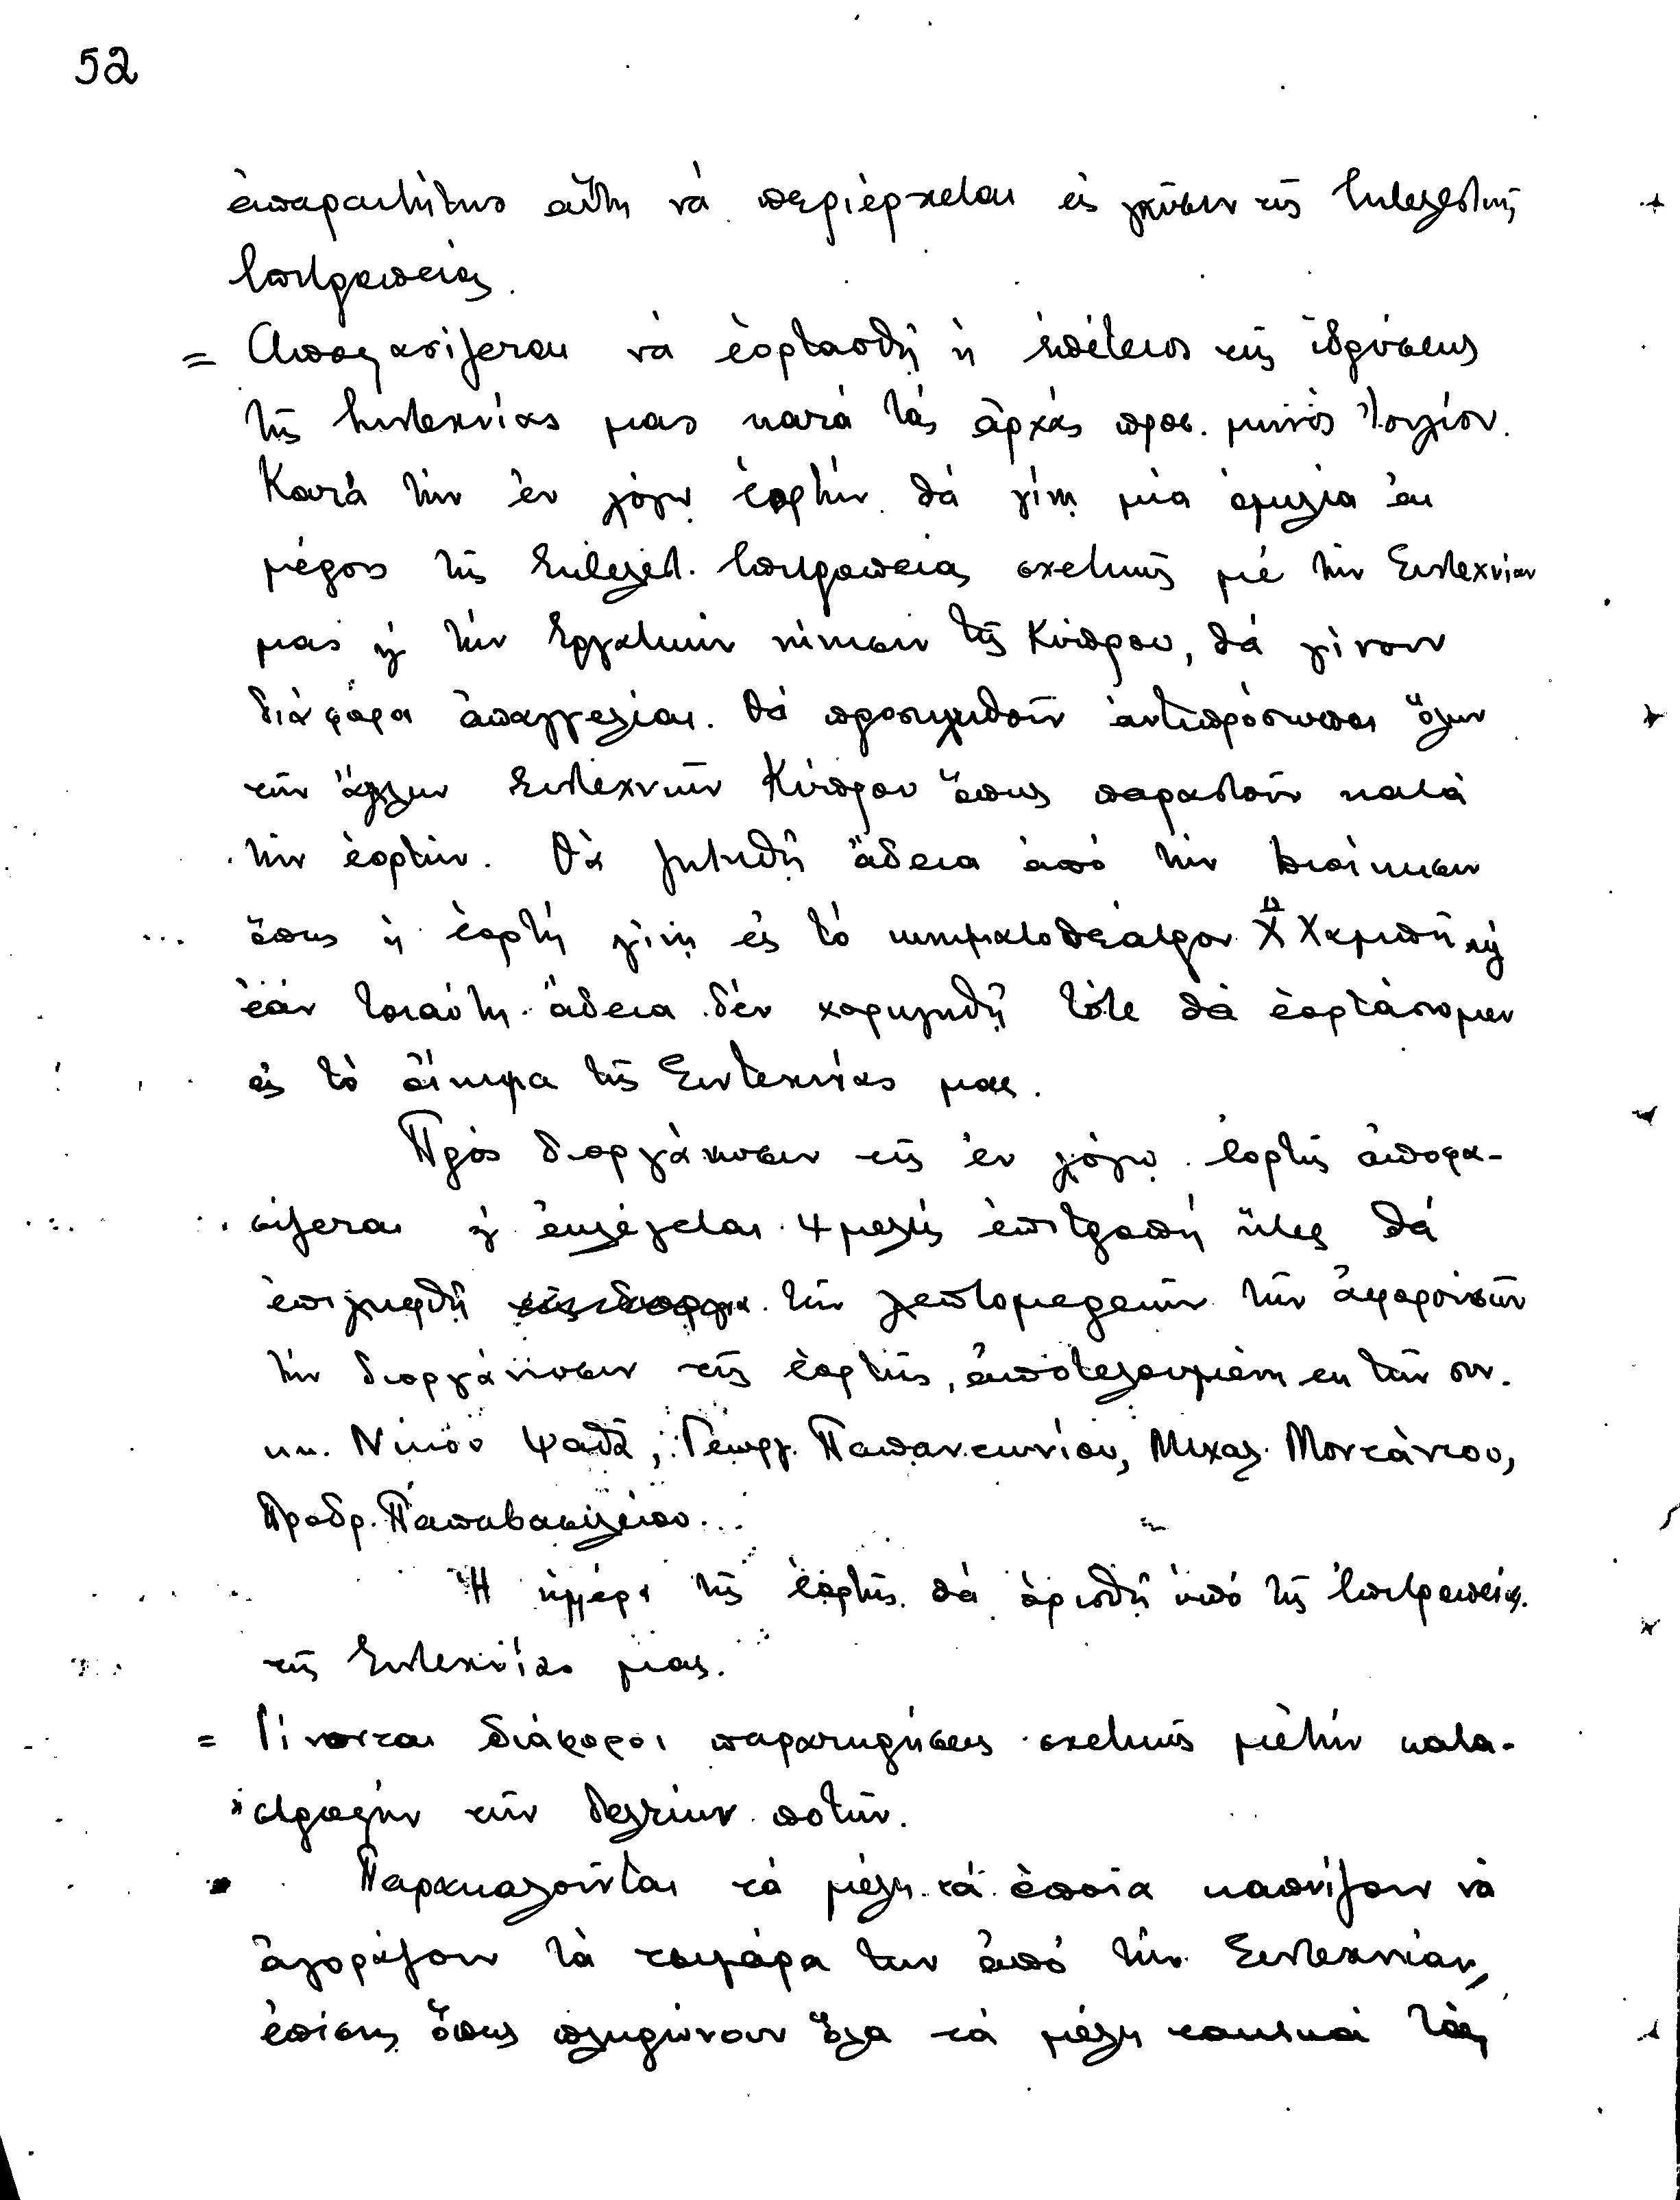 52
ἀπαραιτήτως αὕτη νά περιέρχεται εἰς γνῶσιν τῆς Ἐκτελεστικῆς
Ἐπιτροπείας.
= Ἀποφασίζεται νά ἑορτασθῇ ἡ ἐπέτειος τῆς ἱδρύσεως
τῆς Συντεχνίας μας κατά τάς ἀρχάς προσ. μηνός Ἰουλίου.
Κατά τήν ἐν λόγῳ ἑορτήν θά γίνῃ μία ὁμιλία ἐκ
μέρους τῆς Ἐκτελεστ. Ἐπιτροπείας σχετικῶς μέ τήν Συντεχνίαν
μας ἤ τήν Ἐργατικήν κίνησιν τῆς Κύπρου, θά γίνουν
διάφοραι ἀπαγγελίαι. Θά προσκληθοῦν ἀντιπρόσωποι ὅλων
τῶν ἄλλων Συντεχνιῶν Κύπρου ὅπως παραστοῦν κατά
τήν ἑορτήν. Θά ζητηθῇ ἄδεια ἀπό τήν Διοίκησιν
ὅπως ἡ ἑορτή γίνῃ εἰς τό κινηματοθέατρον Χ" Χαμπῆ ἤ
ἐάν τοιαύτη ἄδεια δέν χορηγηθῇ τότε θά ἑορτάσωμεν
εἰς τό οἴκημα τῆς Συντεχνίας μας.
Πρός διοργάνωσιν τῆς ἐν λόγῳ ἑορτῆς ἀποφα-
σίζεται ἤ ἐκλέγεται 4μελής ἐπιτροπή ἥτις θά
ἐπιληφθῇ τῶν λεπτομερειῶν τῶν ἀφορουσῶν
τήν διοργάνωσιν τῆς ἑορτῆς, ἀποτελουμένη ἐκ τῶν συν.
κ.κ. Νίκου Ψαθᾶ, Γεωργ. Παπαντωνίου, Μιχαλ. Μοντάνιου,
Προδρ. Παπαβασιλείου.
Ἡ ἡμέρα τῆς ἑορτῆς θά ὁρισθῇ ὑπό τῆς Ἐπιτροπείας
τῆς Συντεχνίας μας.
= Γίνονται διάφοροι παρατηρήσεις σχετικῶς μέ τήν κατα-
στροφήν τῶν δελτίων ποτῶν.
Παρακαλοῦνται τά μέλη τά ὁποῖα καπνίζουν νά
ἀγοράζουν τά τσιγάρα των ἀπό τήν Συντεχνίαν,
ἐπίσης ὅπως πληρώνουν ὅλα τά μέλη τακτικά τάς